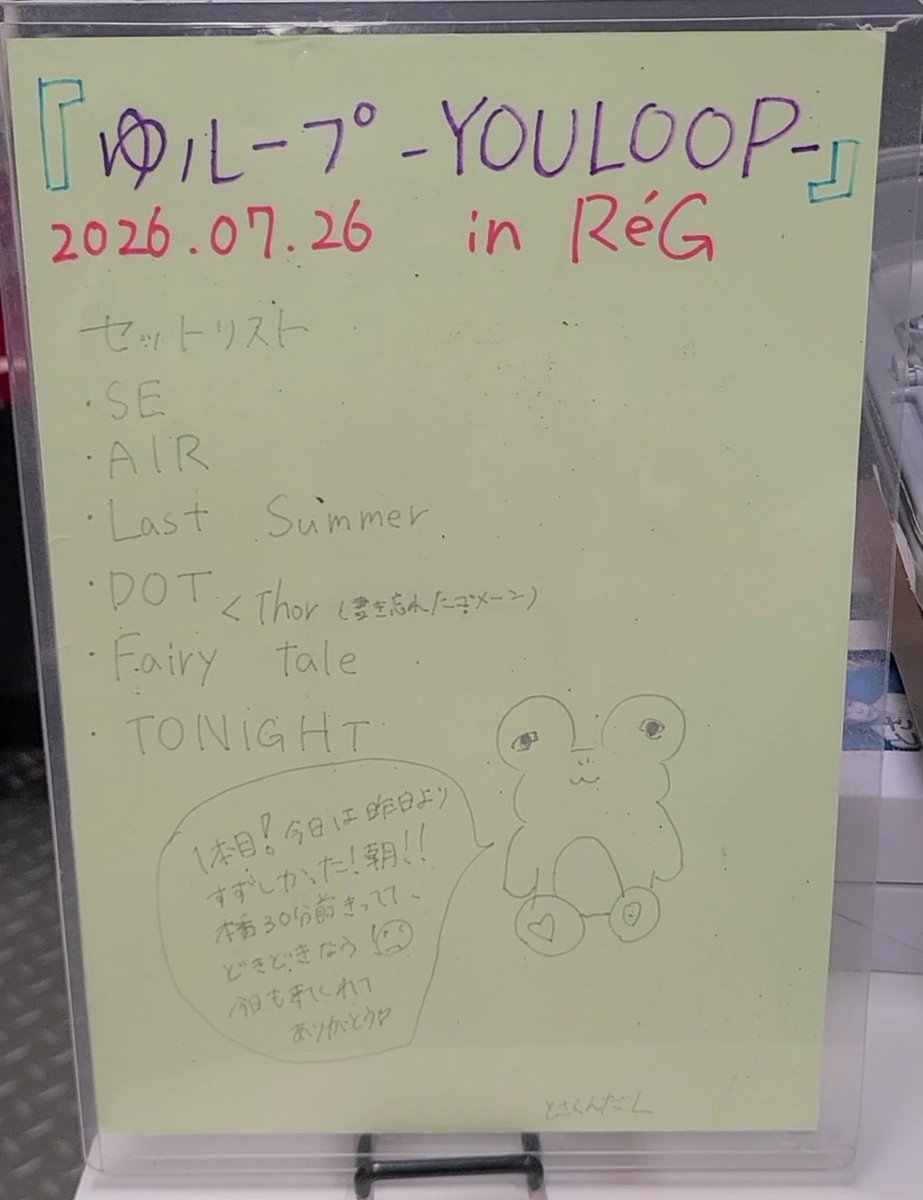 『ゆループ-YOULOOP-』
2026.07.26 in RéG
セットリスト
・SE
・AIR
・Last Summer
・DOT
<Thor (書き忘れたゴメーン)
・Fairy tale
・TONiGHT
1本目!今日は昨日より
すずしかった!朝!!
本番30分前きってて、
どきどきなう
今日も来てくれて
ありがとう♡